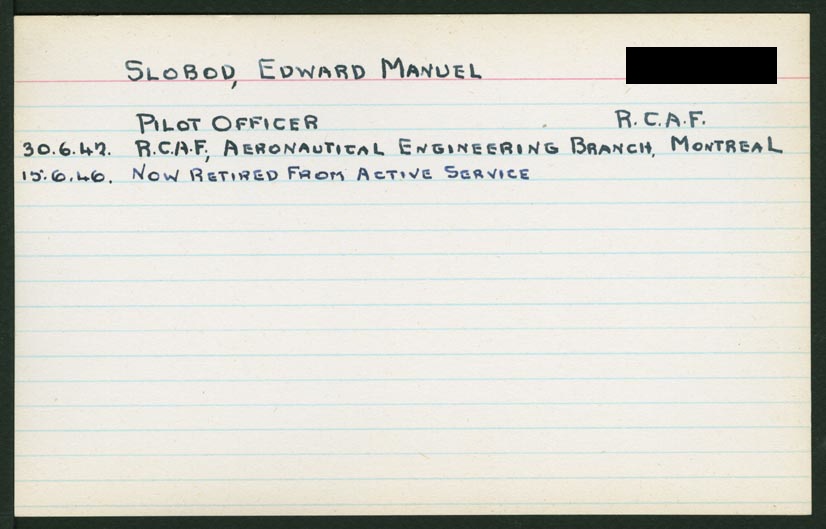 SLOBOD, EDWARD MANUEL
PILOT OFFICER R.C.A.F.
30.6.42. R.C.A.F., AERONAUTICAL ENGINEERING BRANCH, MONTREAL
15.6.46. NOW RETIRED FROM ACTIVE SERVICE